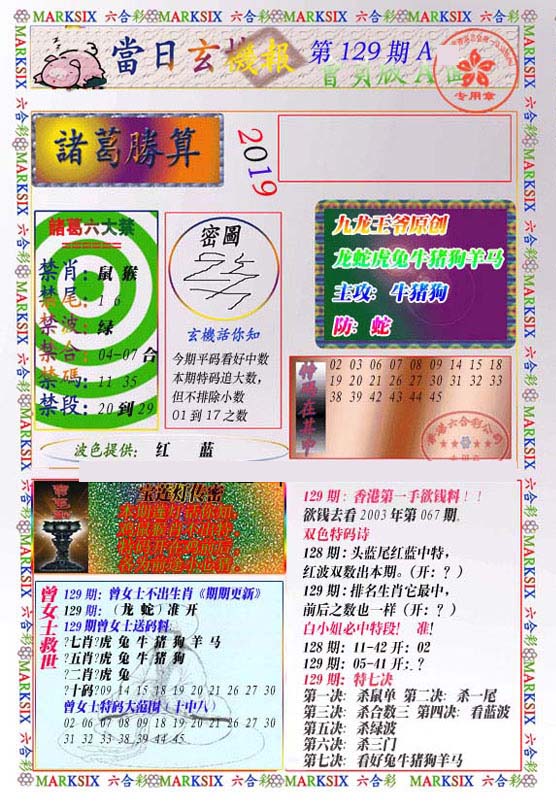 MARKSIX 六合彩 MARKSIX 六合彩 MARKSIX 六合彩 MARKSIX 六合彩
當日玄機報
第 129 期 A
专用章
諸葛勝算
2019
諸葛六大禁
禁肖: 鼠 猴
禁尾: 1 6
禁波: 绿
禁合: 04-07 合
禁碼: 11 35
禁段: 20 到 29
密圖
玄機話你知
今期平码看好中数
本期特码追大数，
但不排除小数
01 到 17 之数
九龙王爷原创
龙蛇虎兔牛猪狗羊马
主攻: 牛猪狗
防: 蛇
特碼在其中
02 03 06 07 08 09 14 15 18
19 20 21 26 27 30 31 32 33
38 39 42 43 44 45
波色提供: 红 蓝
宝莲灯传密
曾女士救世
129 期: 曾女士不出生肖《期期更新》
129 期: （龙 蛇）准 开
129 期曾女士送码料:
?七肖?虎 兔 牛 猪 狗 羊 马
?五肖?虎 兔 牛 猪 狗
?二肖?虎 兔
?十码?09 14 15 18 19 20 21 26 27 30
曾女士特码大范围（十中八）
02 06 07 08 09 18 19 20 21 26 27 30
31 32 33 38 39 44 45.
129 期: 香港第一手欲钱料！！
欲钱去看 2003 年第 067 期.
双色特码诗
128 期: 头蓝尾红蓝中特，
红波双数出本期。（开: ？）
129 期: 排名生肖它最中，
前后之数也一样（开: ？）
白小姐必中特段！ 准！
128 期: 11-42 开: 02
129 期: 05-41 开: ？
129 期: 特七决
第一决: 杀鼠单 第二决: 杀一尾
第三决: 杀合数三 第四决: 看蓝波
第五决: 杀绿波
第六决: 杀三门
第七决: 看好兔牛猪狗羊马
MARKSIX 六合彩 MARKSIX 六合彩 MARKSIX 六合彩 MARKSIX 六合彩